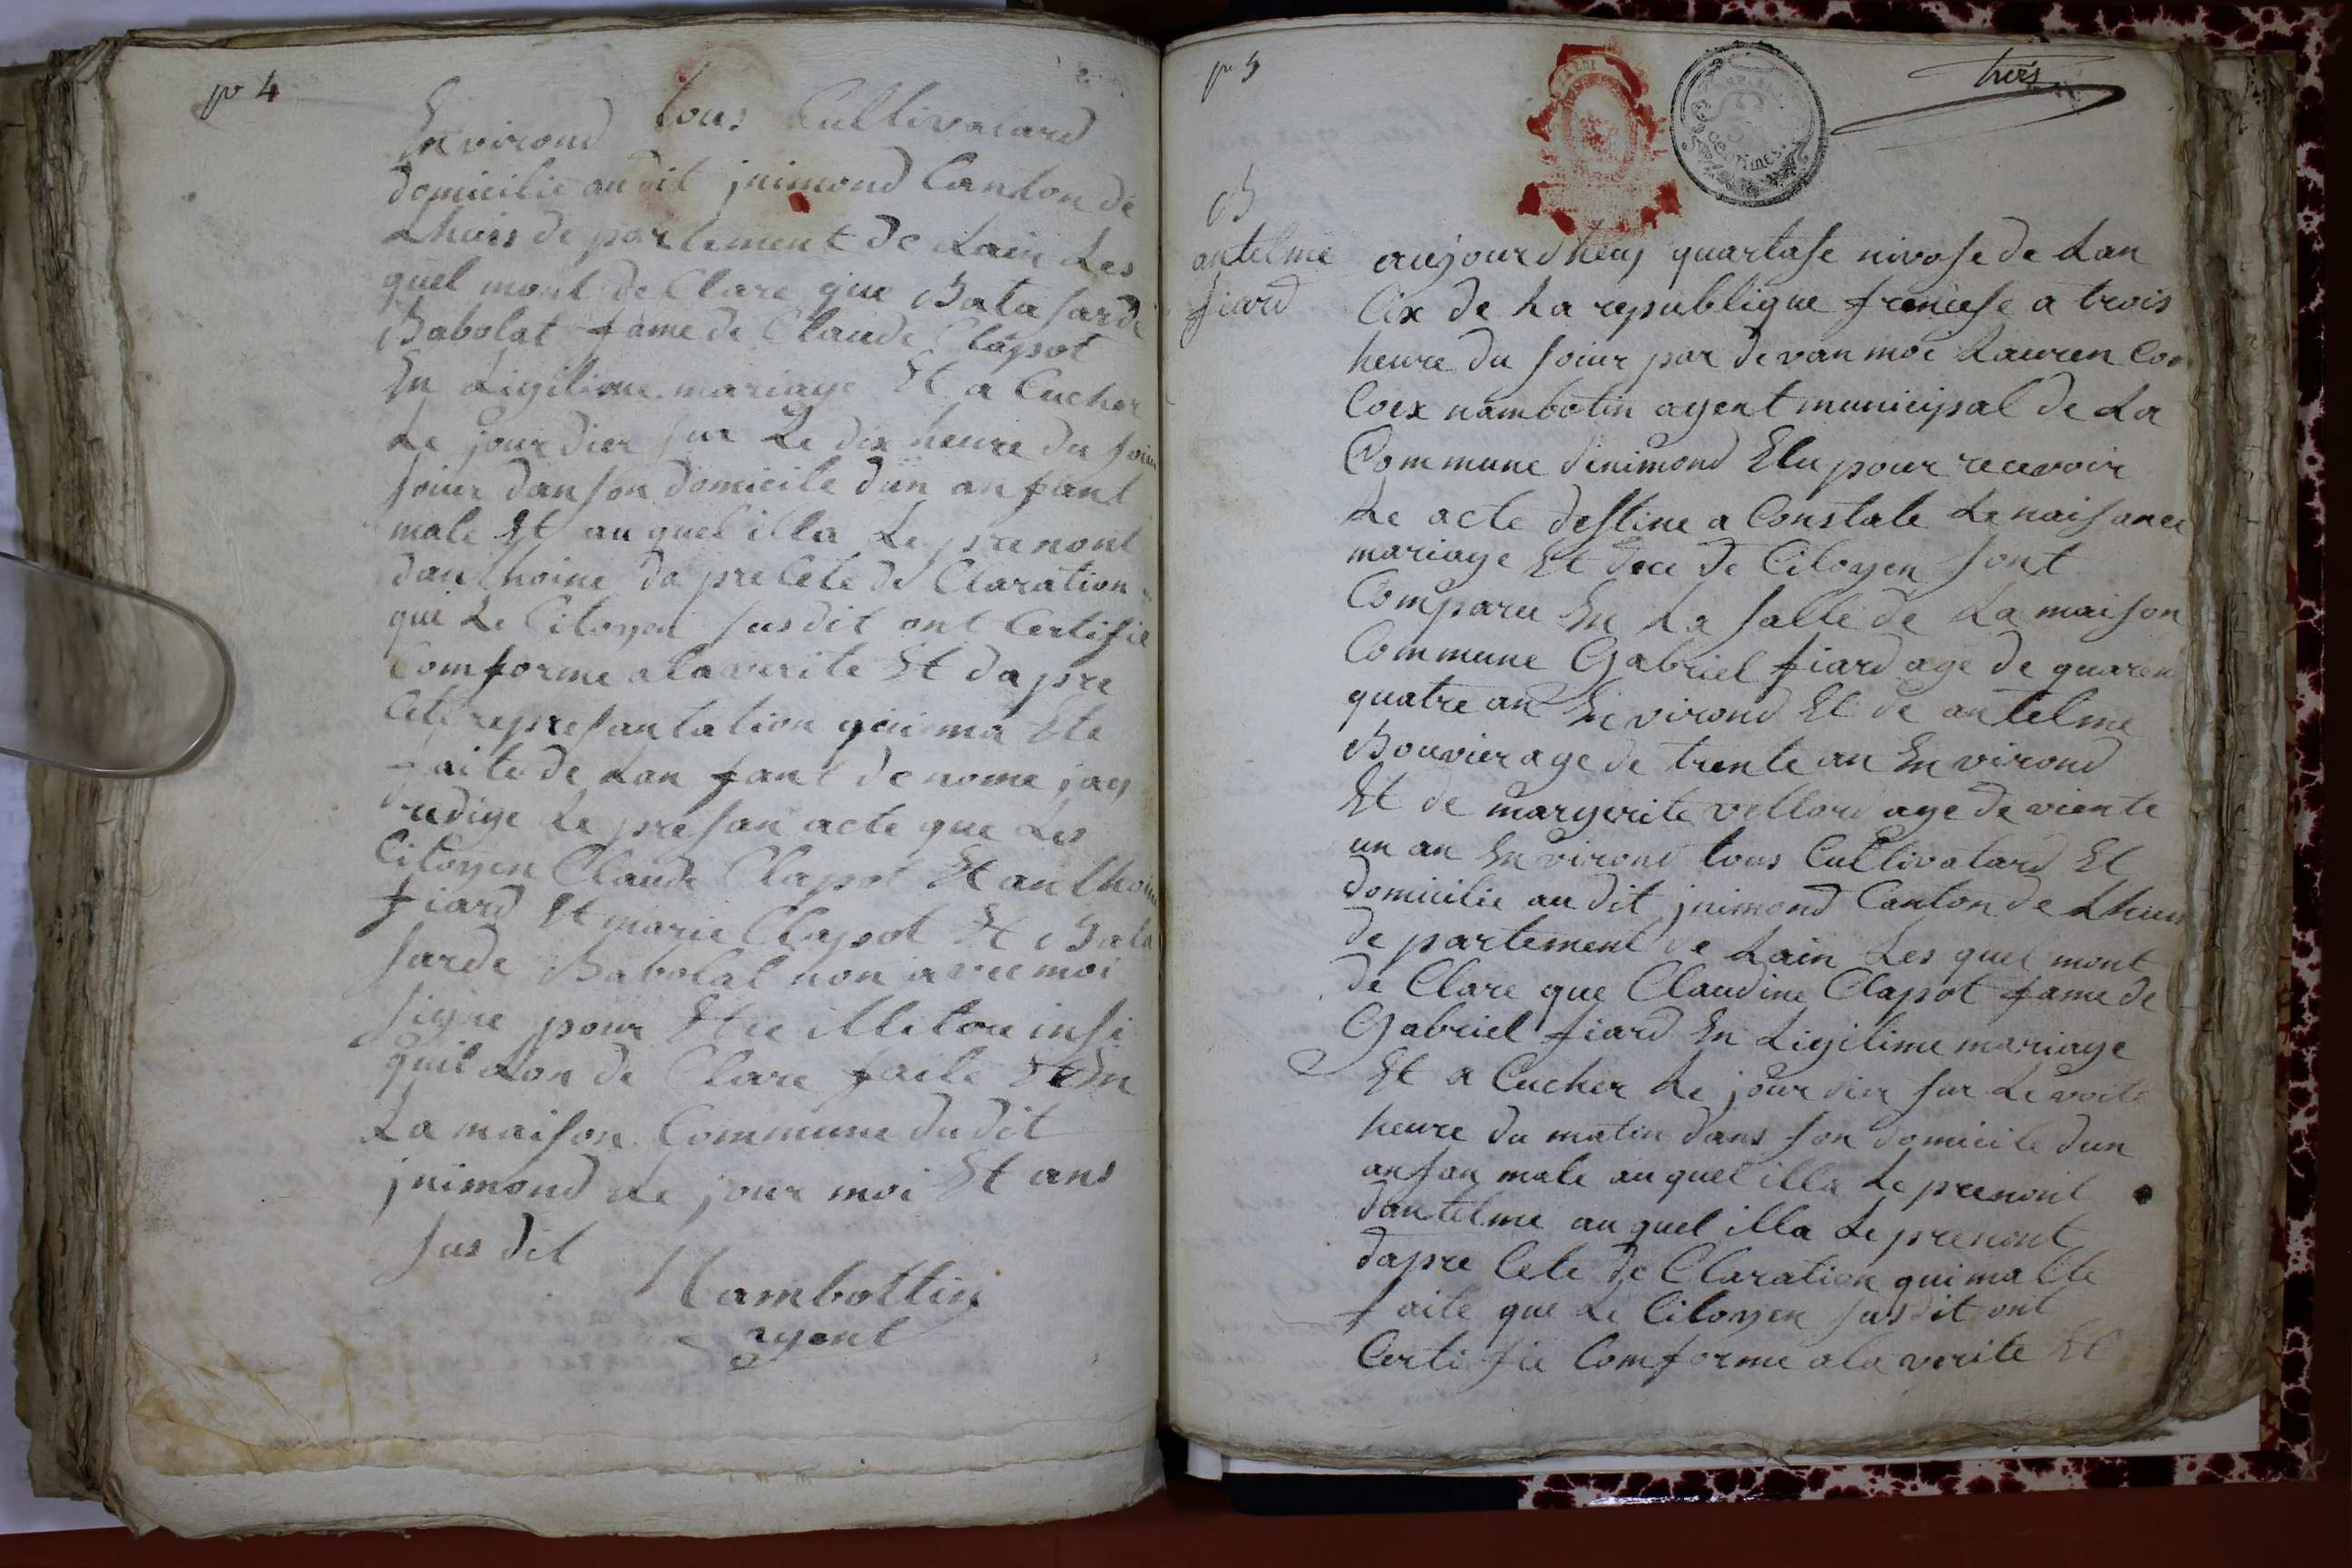 po 4
Environd tous Cultivatard
domicilie audit jnimond Canton de
Lhuis departement de Lain Les
quel mont de Clare que Bata sarde
Babolat fame de Claude Clapot
En Ligilime mariage Et a Cucher
Le jour dier sur Le dix heure du soiur
soiur dan son domicile dun anfant
male Et au quel illa Le prenont
danthoine dapre Cete de Claration
que Le Citoyen susdit ont Certifie
Comforme ala verite Et dapre
Cete represantation qui ma Ete
faite de Lan fant de nome jay
redige Le presan acte que Les
Citoyen Claude Clapot Et anthoine
fiard Et marie Clapot Et Bata
sarde Babolat non avec moi
signe pour Etre illitere insi
quil Lon de Clare faite En
La maison Commune du dit
jnimond Le jour moi Et ans
sus dit
Nambottin
agent
po 5
trois
B
antelme
fiard
CENTIMES
aujourdheuj quartase nivose de Lan
Cix de La republique francese a trois
heure du soiur par devan moi Lauren Con
Coex nambotin agent municipal de La
Commune dinimond Elu pour recevoir
Le acte destine a Constate Le naisance
mariage Et dece de Citoyen sont
Comparu En La salle de La maison
Commune Gabriel fiard age de quaren
quatre an Environd Et de antelme
Bouvier age de trente an Environd
Et de margerite vellard age de viente
un an Environd tous Cultivatard Et
domicilie au dit jnimond Canton de Lhuis
departement de Lain Les quel mont
de Clare que Claudine Clapot fame de
Gabriel fiard En Ligilime mariage
Et a Cucher Le jour dier sur Le
heure du matin dans son domicile dun
anfan male au quel illa Le prenont
dantelme au quel illa Le prenont
dapre Cete de Claration qui ma Ete
faite que Le Citoyen susdit ont
Certifie Comforme ala verite Et